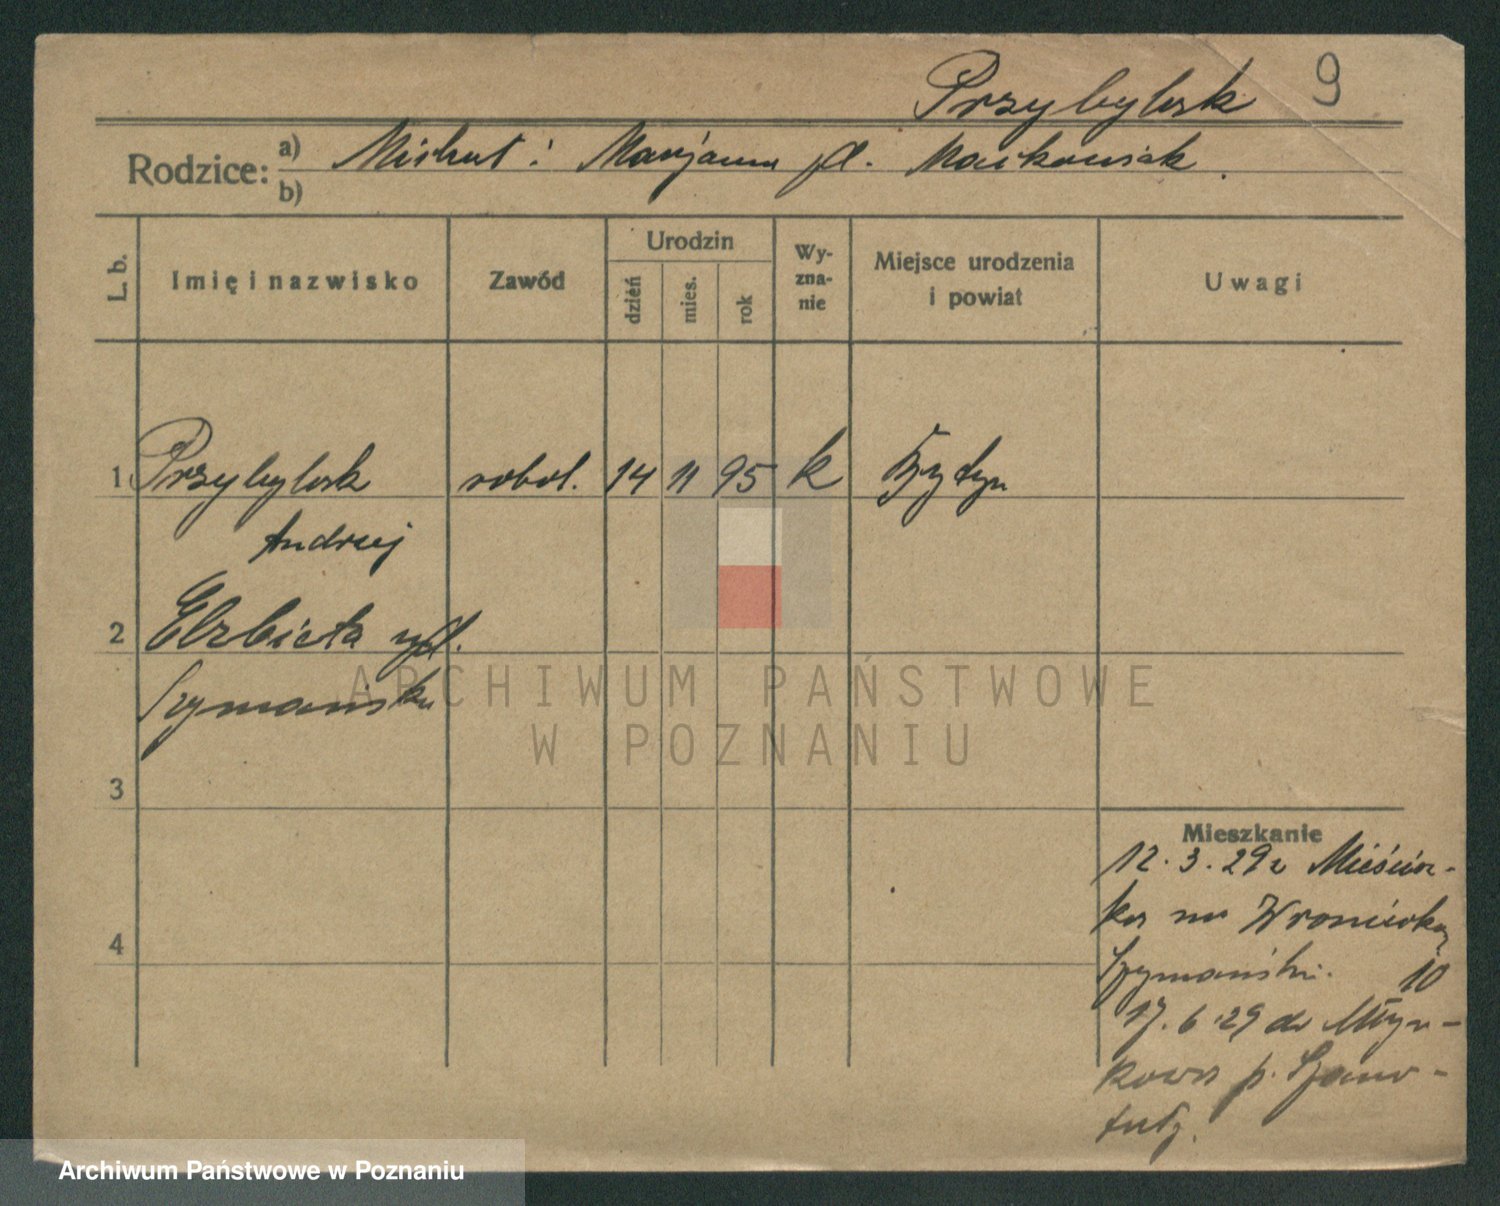 Przybylsk 9
Rodzice: a) Michał i Marjanna
b)
L. b.
Imię i nazwisko
Zawód
Urodzin
dzień
mies.
rok
Wy-
zna-
nie
Miejsce urodzenia
i powiat
Uwagi
1 Przybylsk robot. 14 11 95 k Bytyn
Andrzej
2 Elzbieta
Szymańska
3
4
Mieszkanie
12.3.29 z Mieścis-
ka na Wroniecka
Szymański. 10
17.6.29 do Młyn-
kowa p. Szamo-
tuły.
ARCHIWUM PAŃSTWOWE
W POZNANIU
Archiwum Państwowe w Poznaniu